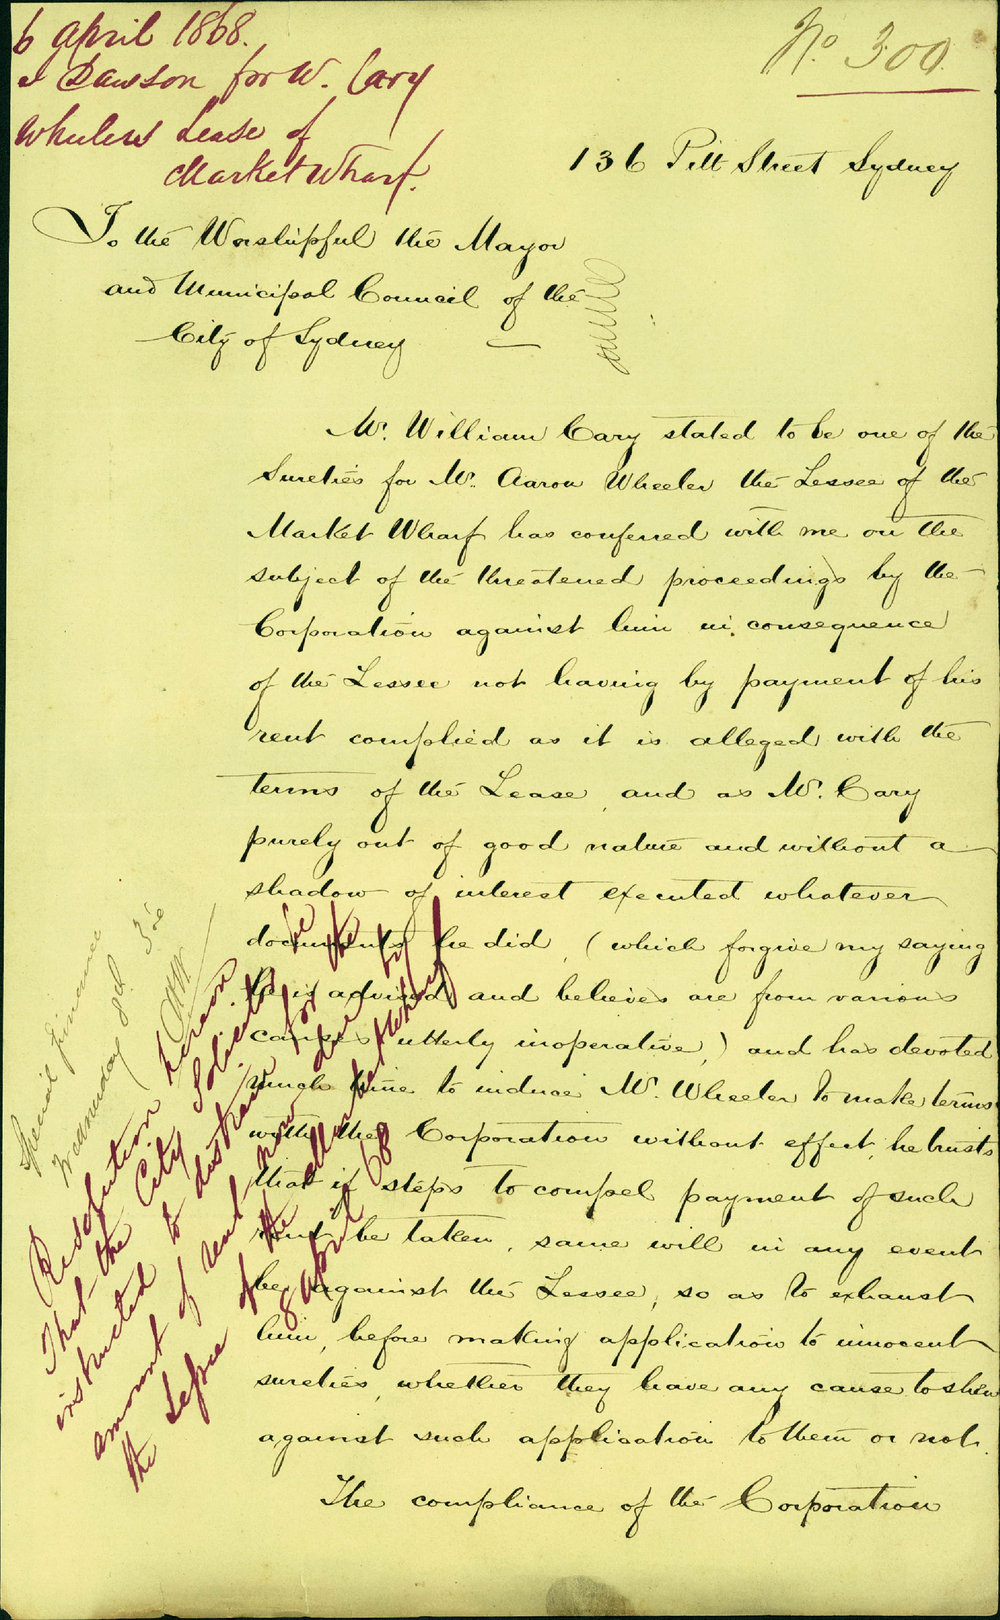 6 April 1868.
Dawson for W. Cary
Wheelers Lease of
Market Wharf.
No. 300.
136 Pitt Street Sydney
To the Worshipful the Mayor
and Municipal Council of the
City of Sydney
Mr. William Cary stated to be one of the
Sureties for Mr. Aaron Wheeler the Lessee of the
Market Wharf has conferred with me on the
subject of the threatened proceedings by the
Corporation against him in consequence
of the Lessee not having by payment of his
rent complied as it is alleged with the
terms of the Lease, and as Mr. Cary
purely out of good nature and without a
shadow of interest executed whatever
documents he did, (which forgive my saying
he is advised and believes are from various
causes utterly inoperative,) and has devoted
much time to induce Mr. Wheeler to make terms
with the Corporation without effect, he trusts
that if steps to compel payment of such
rent be taken, same will in any event
be against the Lessee, so as to exhaust
him, before making application to innocent
sureties, whether they have any cause to shew
against such application to them or not.
The compliance of the Corporation
Special Finance
Wednesday 8th
Resolution hereon
That the City Solicitor be
instructed to distrain for the
amount of rent now due by
the Lessee of the Market Wharf
8 April 68